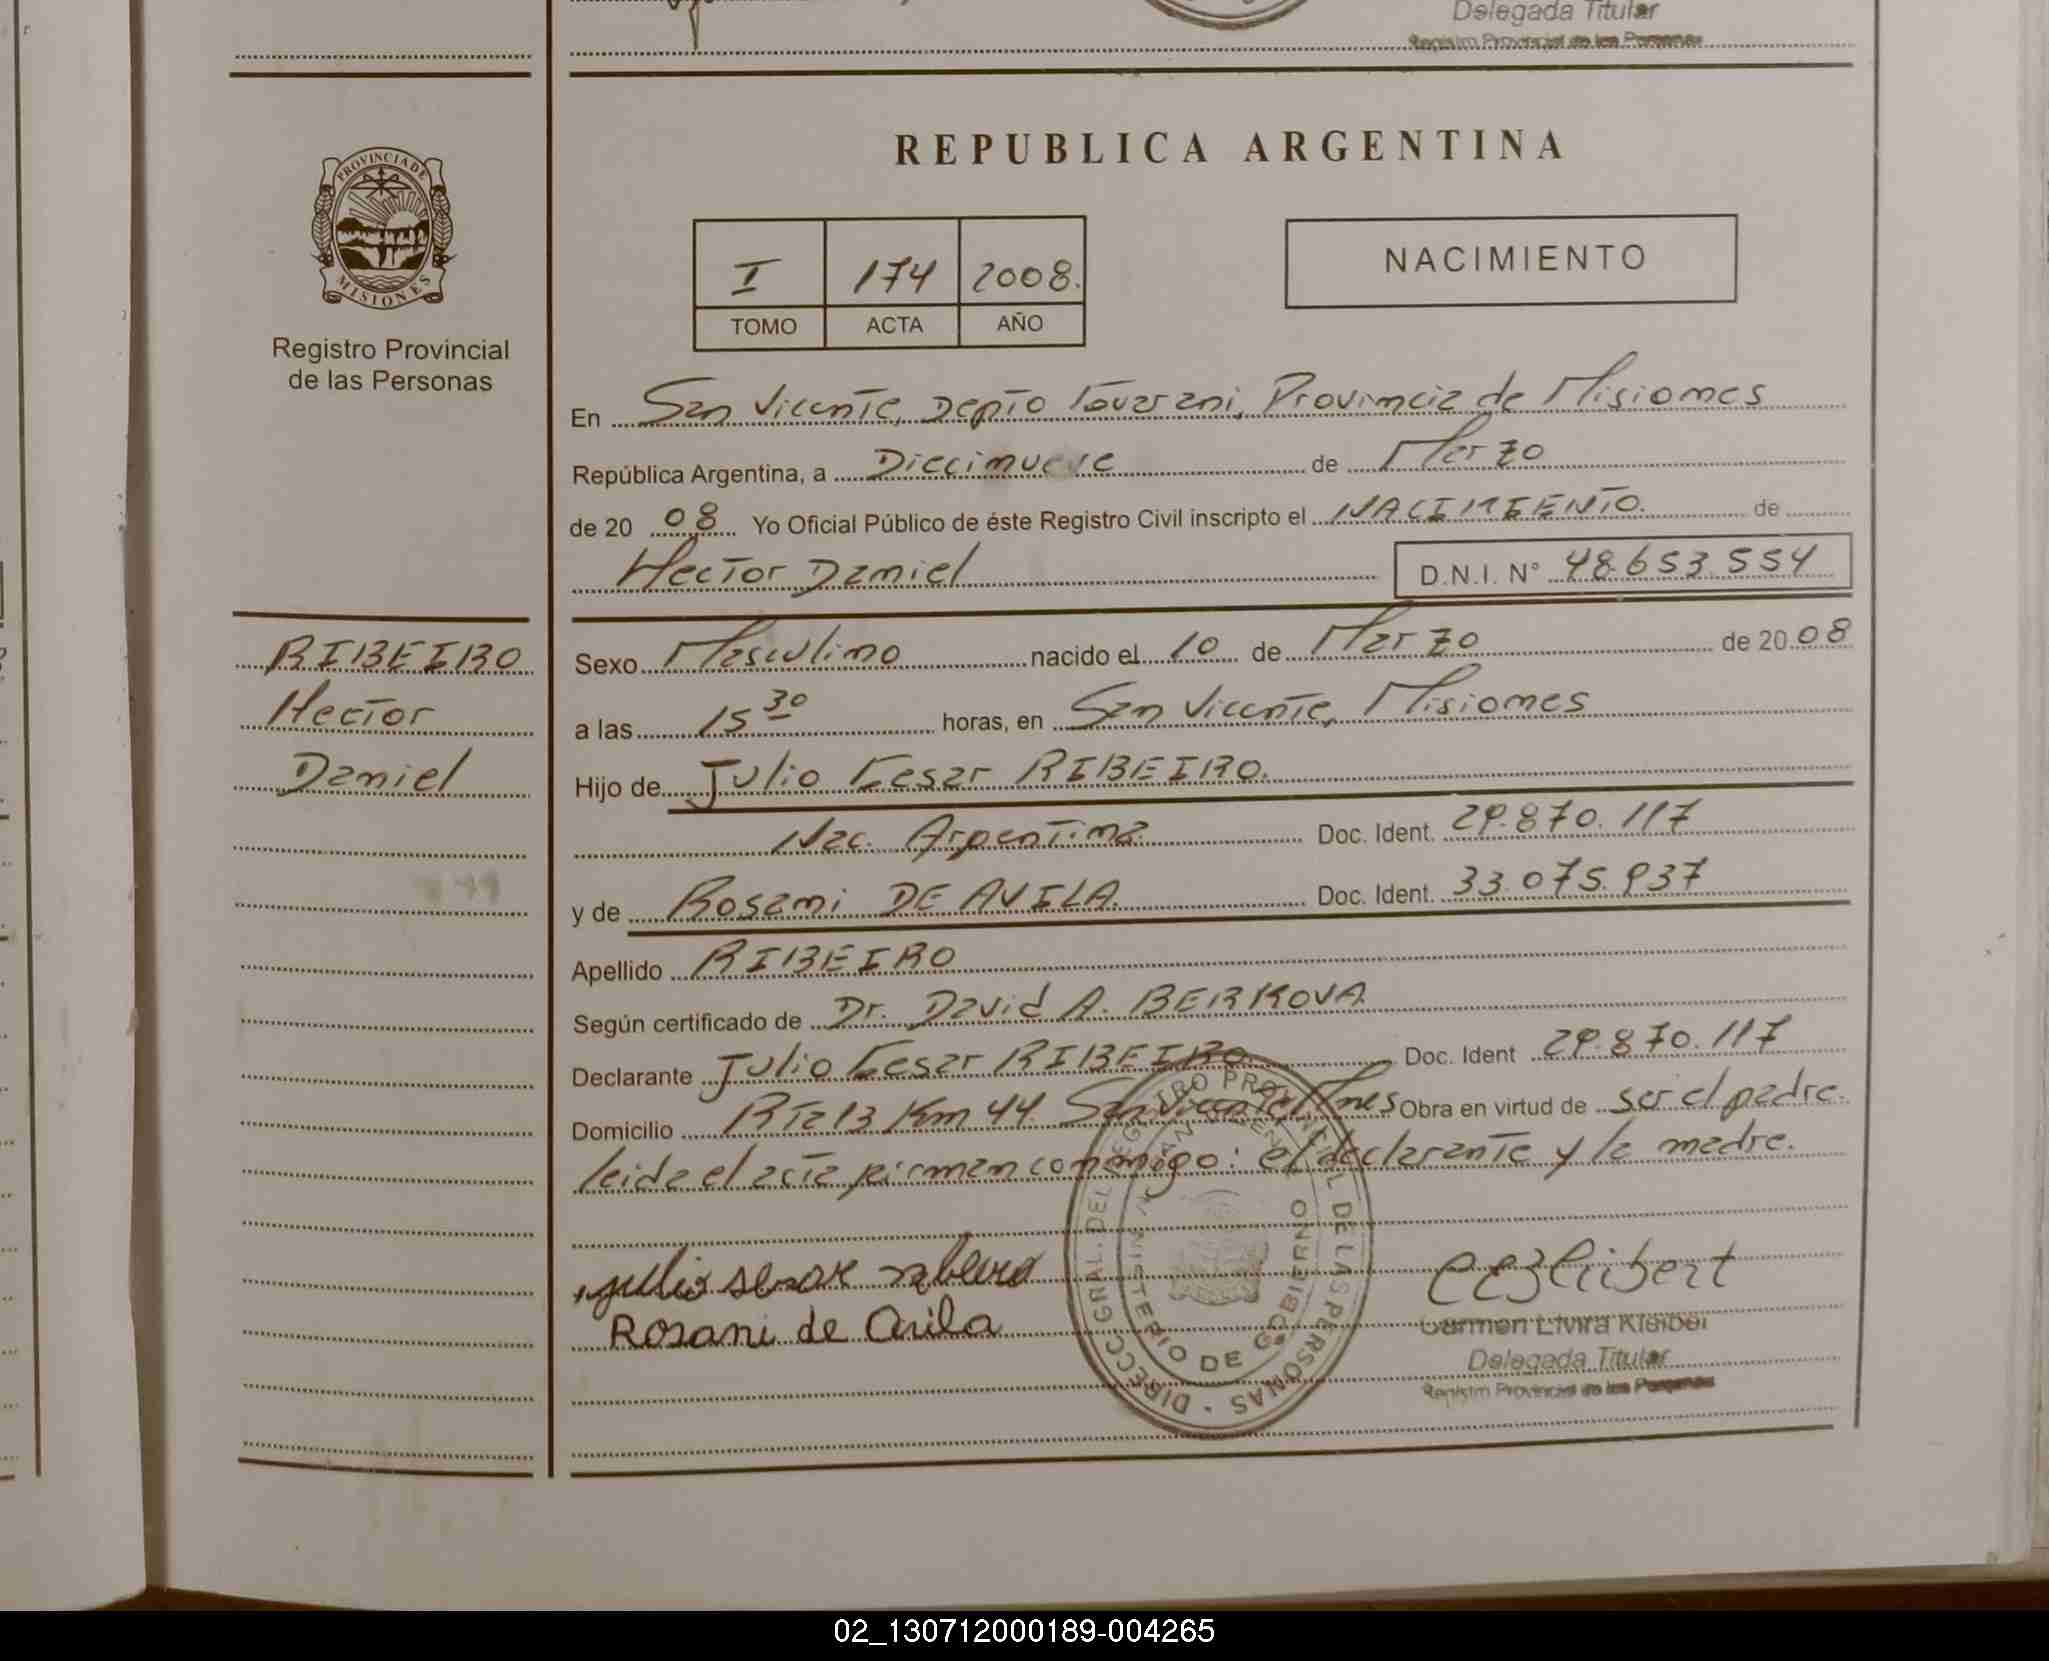 Delegada Titular
Registro Provincial de las Personas
PROVINCIA DE
MISIONES
Registro Provincial
de las Personas
REPUBLICA ARGENTINA
I 174 2008.
TOMO ACTA AÑO
NACIMIENTO
En San Vicente, Depto Guarani, Provincia de Misiones
República Argentina, a Diecinueve de Marzo
de 20 08 Yo Oficial Público de éste Registro Civil inscripto el NACIMIENTO. de
Hector Daniel D.N.I. N° 48.653.554
RIBEIRO
Hector
Daniel
Sexo Masculino nacido el 10 de Marzo de 20 08
a las 15 30 horas, en San Vicente, Misiones
Hijo de Julio Cesar RIBEIRO.
Nac. Argentina. Doc. Ident. 29.870.117
y de Rosani DE AVILA. Doc. Ident. 33.075.937
Apellido RIBEIRO
Según certificado de Dr. David A. BERKOVA.
Declarante Julio Cesar RIBEIRO. Doc. Ident 29.870.117
Domicilio Rta 13 Km 44. San Vicente, Mnes Obra en virtud de ser el padre.
leida el acta firman conmigo: el declarante y la madre.
julio sesar
Rosani de Avila
DIRECC. GRAL. DEL REGISTRO PROVINCIAL DE LAS PERSONAS
MINISTERIO DE GOBIERNO
Carmen Elvira Kleiber
Delegada Titular
Registro Provincial de las Personas
02_130712000189-004265